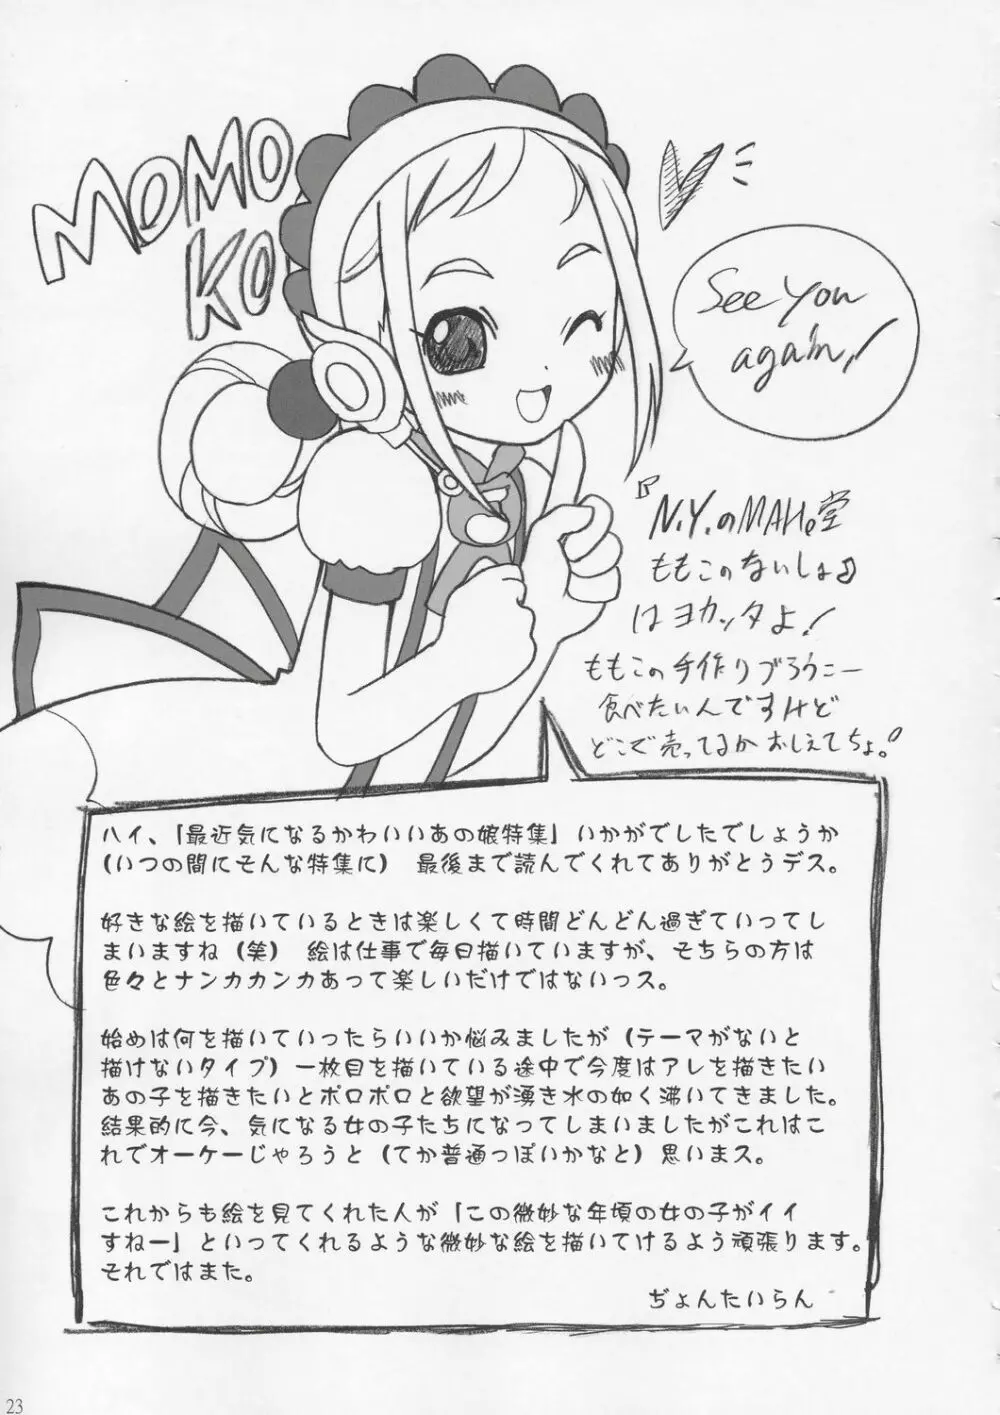 MOMO
KO
See you
again!
『N.Y.のMAHO堂
ももこのないしょ♪』
はヨカッタよ!
ももこの手作りブろうにー
食べたいんですけど
どこで売ってるかおしえてちょ。
ハイ、「最近気になるかわいいあの娘特集」いかがでしたでしょうか
(いつの間にそんな特集に) 最後まで読んでくれてありがとうデス。
好きな絵を描いているときは楽しくて時間どんどん過ぎていってし
まいますね(笑) 絵は仕事で毎日描いていますが、そちらの方は
色々とナンカカンカあって楽しいだけではないっス。
始めは何を描いていったらいいか悩みましたが(テーマがないと
描けないタイプ)一枚目を描いている途中で今度はアレを描きたい
あの子を描きたいとポロポロと欲望が湧き水の如く沸いてきました。
結果的に今、気になる女の子たちになってしまいましたがこれはこ
れでオーケーじゃろうと(てか普通っぽいかなと)思いまス。
これからも絵を見てくれた人が「この微妙な年頃の女の子がイイ
すねー」といってくれるような微妙な絵を描いてけるよう頑張ります。
それではまた。
ぢょんたいらん
23